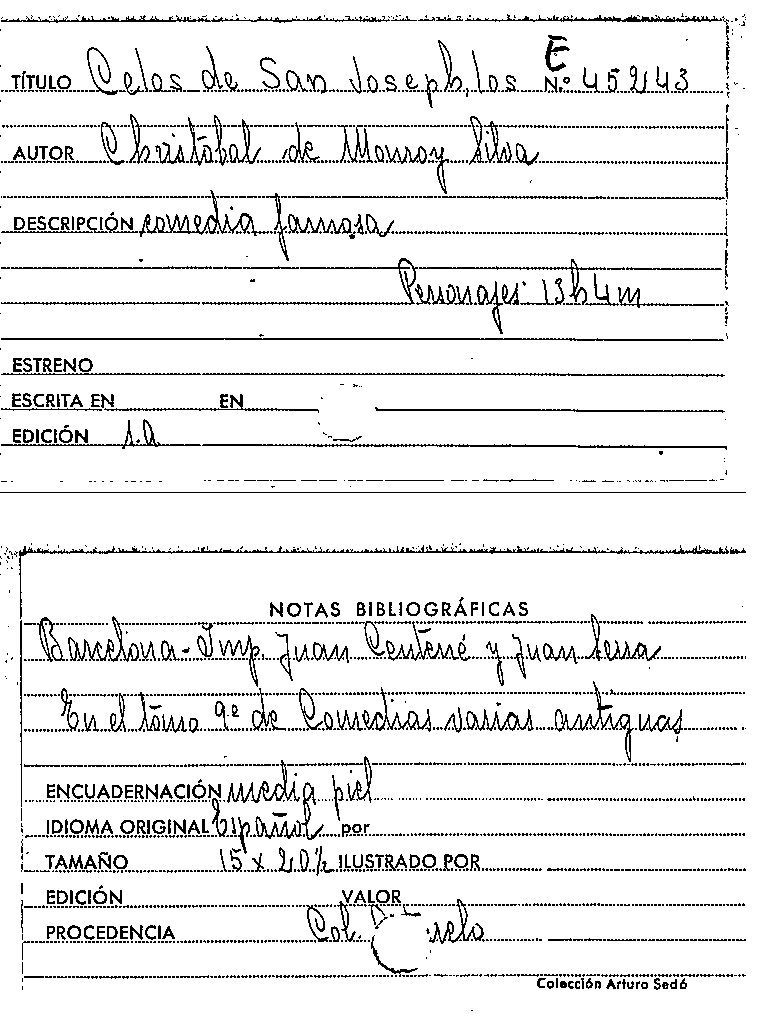 E
TÍTULO Celos de San Joseph, los N.º 45243
AUTOR Christóbal de Monroy Silva
DESCRIPCIÓN comedia famosa
Personajes 13h4m
ESTRENO
ESCRITA EN EN
EDICIÓN s.a
NOTAS BIBLIOGRÁFICAS
Barcelona - Imp. Juan Centené y Juan Serra
En el tomo 9º de Comedias varias antiguas
ENCUADERNACIÓN media piel
IDIOMA ORIGINAL Español por
TAMAÑO 15 x 20½ ILUSTRADO POR
EDICIÓN VALOR
PROCEDENCIA Col.
Colección Arturo Sedó